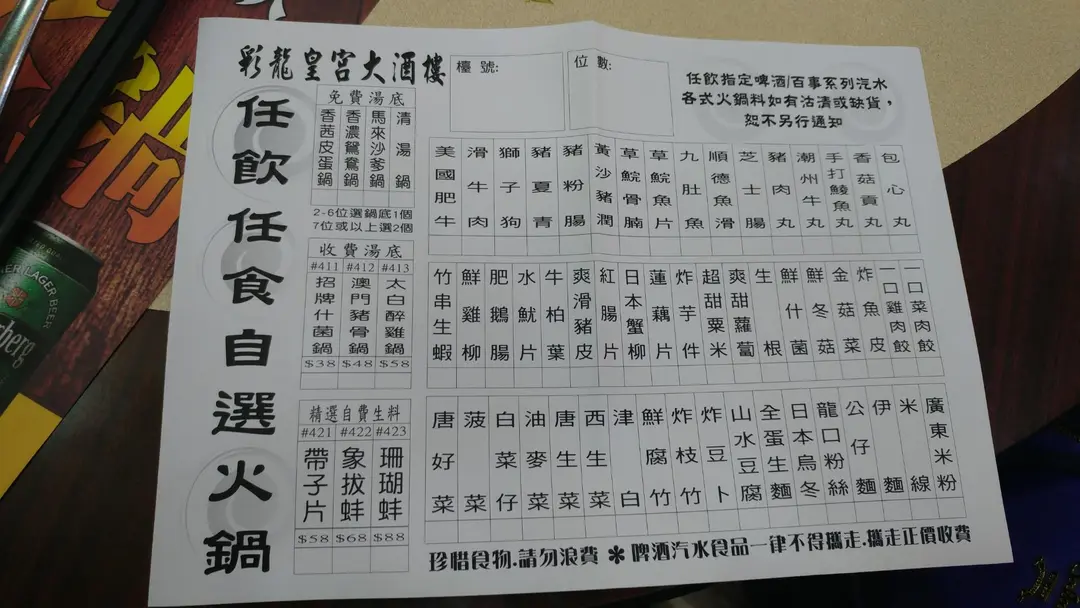 彩龍皇宮大酒樓
檯號:
位數:
任飲指定啤酒/百事系列汽水
各式火鍋料如有沽清或缺貨，
恕不另行通知
任飲任食自選火鍋
免費湯底
香茜皮蛋鍋
香濃鴛鴦鍋
馬來沙爹鍋
清湯鍋
2-6位選鍋底1個
7位或以上選2個
收費湯底
#411 #412 #413
招牌什菌鍋
澳門豬骨鍋
太白醉雞鍋
$38 $48 $58
精選自費生料
#421 #422 #423
帶子片
象拔蚌
珊瑚蚌
$58 $68 $88
美國肥牛
滑牛肉
獅子狗
豬夏青
豬粉腸
黃沙豬潤
草鯇骨腩
草鯇魚片
九肚魚
順德魚滑
芝士腸
豬肉丸
潮州牛丸
手打鯪魚丸
香菇貢丸
包心丸
竹串生蝦
鮮雞柳
肥鵝腸
水魷片
牛柏葉
爽滑豬皮
紅腸片
日本蟹柳
蓮藕片
炸芋件
超甜粟米
爽甜蘿蔔
生根
鮮什菌
鮮冬菇
金菇菜
炸魚皮
一口雞肉餃
一口菜肉餃
唐好菜
菠菜
白菜仔
油麥菜
唐生菜
西生菜
津白
鮮腐竹
炸枝竹
炸豆卜
山水豆腐
全蛋生麵
日本烏冬
龍口粉絲
公仔麵
伊麵
米線
廣東米粉
珍惜食物.請勿浪費 ＊ 啤酒汽水食品一律不得攜走.攜走正價收費
LAGER BEER